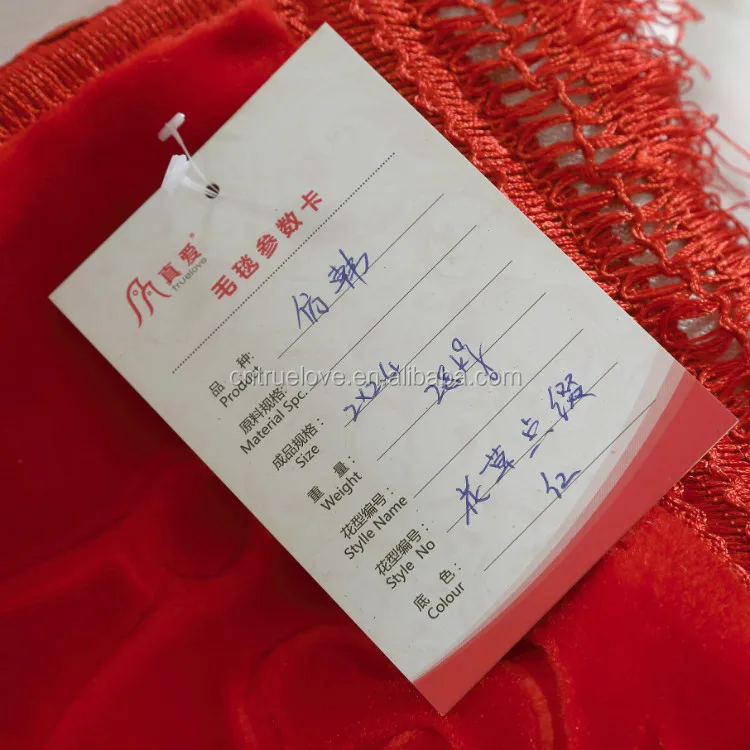 真爱®
truelove
毛毯参数卡
品 种: 仿韩
Product
原料规格:
Material Spc.
成品规格: 2×24
Size
重 量:
Weight
花型编号:
Stylle Name
花型编号: 花草点缀
Style No
底 色: 红
Colour
cntruelove.en.alibaba.com